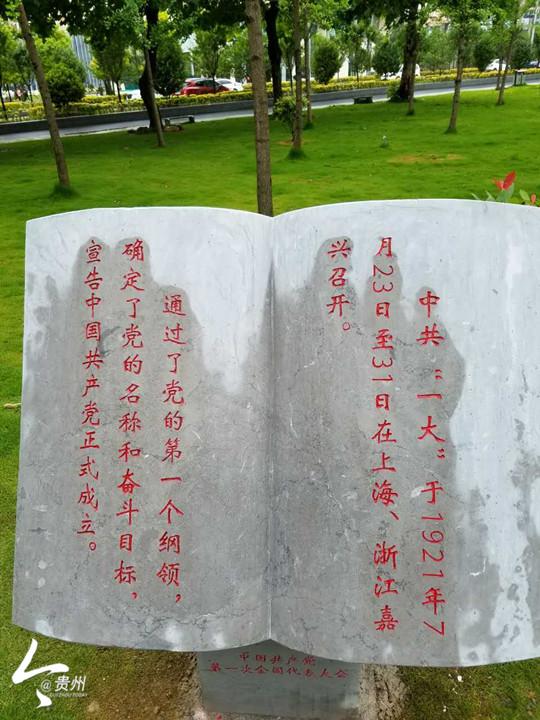 中共“一大”于1921年7
月23日至31日在上海、浙江嘉
兴召开。
通过了党的第一个纲领，
确定了党的名称和奋斗目标，
宣告中国共产党正式成立。
中国共产党
第一次全国代表大会
@贵州
GUIZHOU TODAY